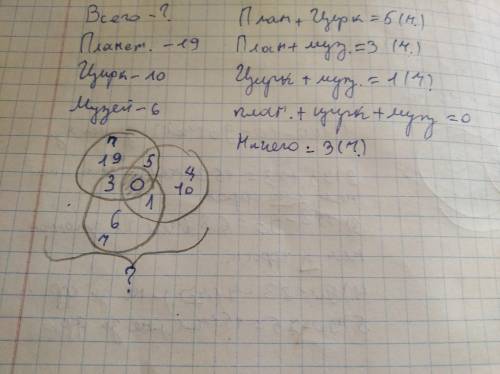 Всего - ?
Планет. - 19
Цирк - 10
Музей - 6
План + Цирк = 5 (ч.)
План + муз. = 3 (ч.)
Цирк + муз. = 1 (ч.)
план. + цирк + муз = 0
Ничего = 3 (ч.)
П
19 5
4
3 0 10
1
6
7
?